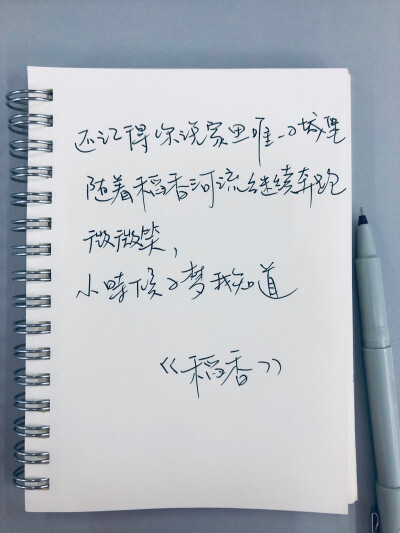 还记得你说家是唯一的城堡
随着稻香河流继续奔跑
微微笑，
小時候的梦我知道
《稻香》